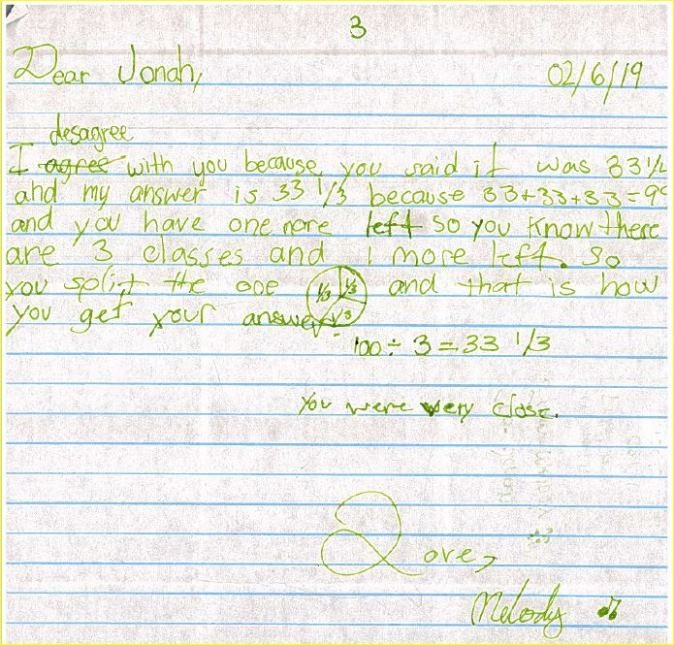 3
Dear Jonah, 02/6/19
desagree
I agree with you because you said it was 33 1/4
and my answer is 33 1/3 because 33+33+33=99
and you have one more left so you know there
are 3 classes and 1 more left. So
you split the one 1/3 1/3 1/3 and that is how
you get your answer.
100 ÷ 3 = 33 1/3
You were very close.
Love,
Melody